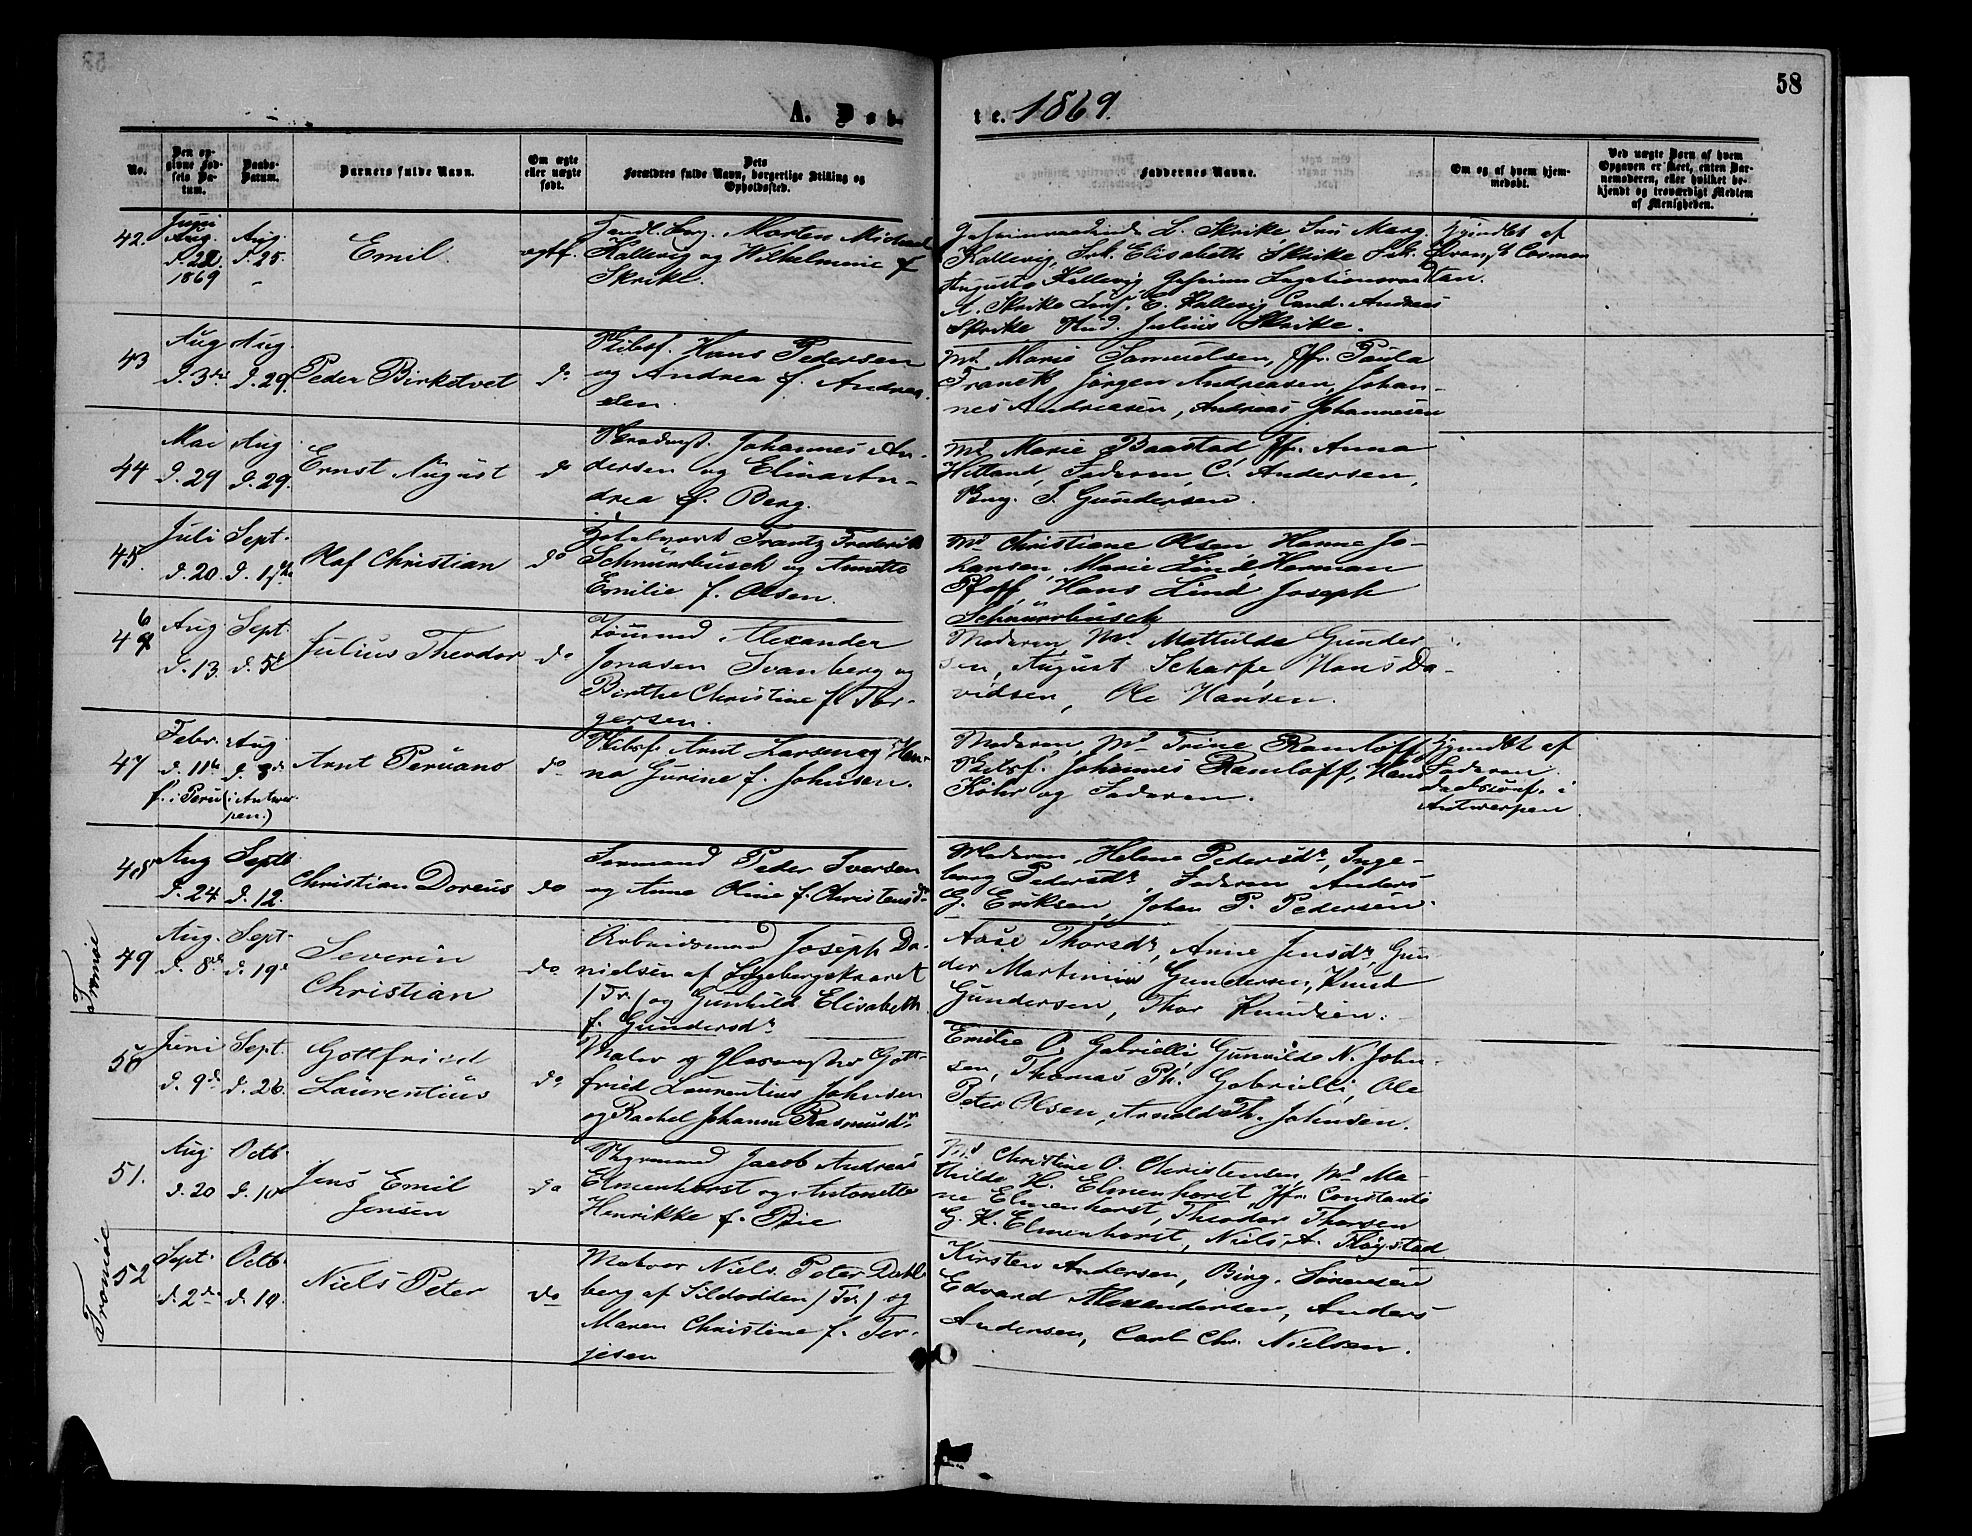 58
A. Døb-
te. 1869.
No.
Den op-
givne Fød-
sels Da-
tum.
Daabs-
Datum.
Barnets fulde Navn.
Om ægte
eller uægte
født.
Dets
Forældres fulde Navn, borgerlige Stilling og
Opholdssted.
Faddernes Navne.
Om og af hvem hjem-
medøbt.
Ved uægte Børn af hvem
Opgaven er skeet, enten Bar-
nemoderen, eller hvilket be-
kjendt og troværdigt Medlem
af Menigheden.
42.
Juni
Aug.
d. 22
1869
Aug.
d. 25.
Emil.
Morten Michael
Kallevig og Wilhelmine f.
Skrike.
L. Skrike, Marg.
Kallevig, Frk. Elisabeth Skrike
Augusta Kallevig
A. Skrike, E. Kallevig Cand. Andreas
Skrike Stud. Julius Skrike.
af
43
Aug
d. 3die
Aug
d. 29.
Peder Birketvet
do
Skibsf. Hans Pedersen
og Andrea f. Andrea-
sen.
Md Marie Samuelsen, Jfr. Paula
Franck, Jørgen Andreasen, Johan-
nes Andreasen, Andreas Johannesen
44
Mai
d. 29
Aug
d. 29.
Ernst August
do
Johannes An-
dersen og Elina An-
drea f. Berg.
Md Marie Baastad, Jfr. Anna
Faderen, C. Andersen,
J. Gundersen.
45.
Juli
d. 20.
Sept.
d. 1ste
Olaf Christian
do
Frantz Frederik
Schnürrbusch og Annette
Emilie f. Olsen.
Md Christiane Olsen, Hanne Jo-
hansen, Marie Lind, Herman
Pfaff, Hans Lind, Joseph
Schnürrbusch
46
Aug
d. 13.
Sept.
d. 5te
Julius Theodor
do
Tømmerd Alexander
Jonasen Svanberg og
Birthe Christine f. Tor-
gersen.
Moderen, Md Mathilde Gunder
sen, August Scharfe, Hans Da-
vidsen, Ole Hansen.
47
Febr.
d. 11te
f. i Peru
Aug
d. 8de
(i Antwer-
pen.)
Arnt Peruano
do
Skibsf. Arnt Larsen og Han-
na Gurine f. Johnsen.
Moderen, Md Trine Ramløff
Skibsf. Johannes Ramløff, Hans
Köhr og Faderen.
Hjemdøbt af
Faderen
i
Antwerpen
48
Aug
d. 24
Septb
d. 12.
Christian Doreus
do
Sømand Peder Iversen
og Anne Oline f. Christensdr
Moderen, Helene Pedersdr, Inge-
borg Pedersdr, Faderen Anders
G. Eriksen, Johan P. Pedersen.
Tromøe
49
Aug.
d. 8de
Sept.
d. 19de
Severin
Christian
do
Arbeidsmand Joseph Da-
nielsen af
(Tr.) og Gunhild Elisabeth
f. Gundersdr
Aase Thorsdr, Anne Jensdr, Gun
der Martinius Gundersen, Knud
Gundersen, Thor Knudsen.
50
Juni
d. 9de
Sept.
d. 26.
Gottfried
Laurentius
do
Maler og Glasmester Gott-
fried Laurentius Johnsen
og Rachel Johanne Rasmusdr
Emilie O. Gabrielli, Gunvilde N. John-
sen, Thomas Ph. Gabrielli, Ole
Peter Olsen, Arnold Th. Johnsen.
51.
Aug.
d. 20
Octb.
d. 10
Jens Emil
Jensen
do
Jacob Andreas
Elmenhorst og Antonette
Henrikke f. Bie
Md Christine O. Christensen, Md Ma-
thilde H. Elmenhorst, Jfr. Constanse
Elmenhorst, Theodor Thorsen
G. K. Elmenhorst, Niels A. Fløystad
Tromøe
52
Sept.
d. 2den
Octb.
d. 10.
Niels Peter
do
Matros Niels Peter Dahl
berg af Sildodden (Tr.) og
Maren Christine f. Ter-
jesen
Kirsten Andersen, Sørensen
Edvard Alexandersen, Anders
Andersen, Carl Chr. Nielsen.